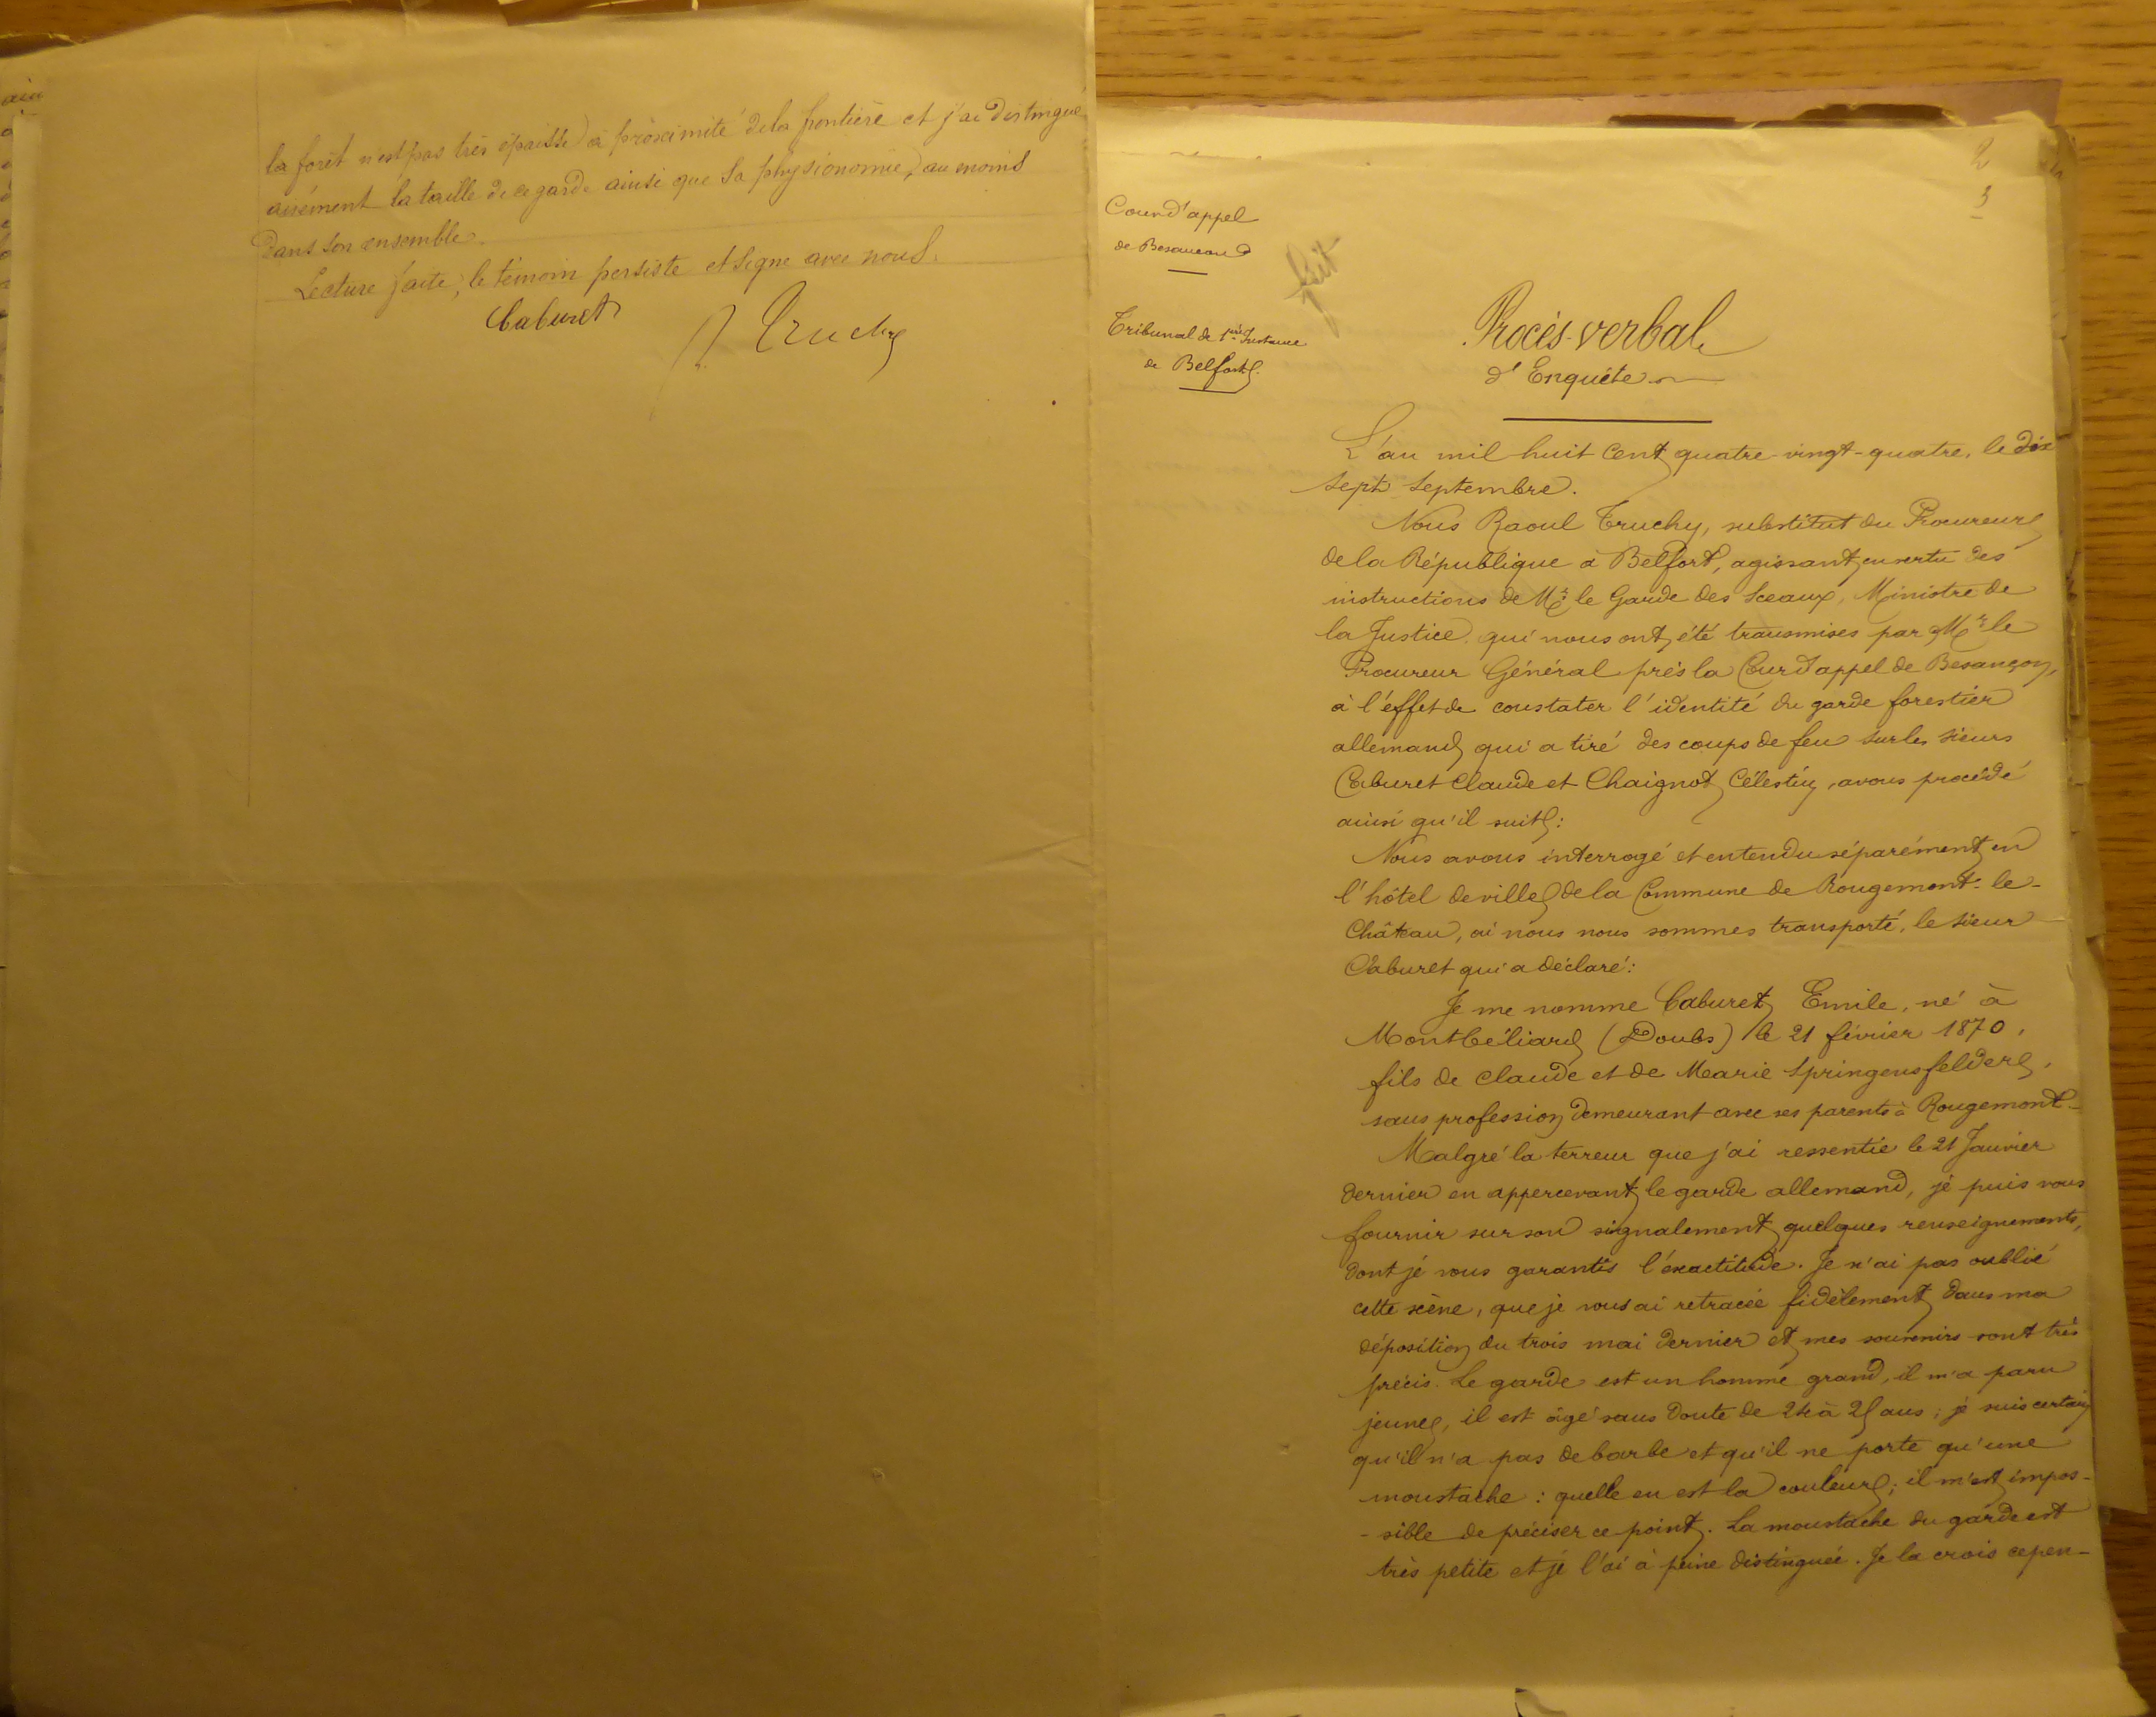 la forêt n'est pas très épaisse à proximité de la frontière et j'ai distingué
aisément la taille de ce garde ainsi que sa physionomie, au moins
dans son ensemble.
Lecture faite, le témoin persiste et signe avec nous.
Caburet
R. Truchy
2
3
Cour d'appel
de Besançon
fait
Tribunal de 1ère Instance
de Belfort.
Procès-verbal
d'Enquête
L'an mil huit cent quatre-vingt-quatre, le dix
sept septembre.
Nous Raoul Truchy, substitut du Procureur
de la République à Belfort, agissant en vertu des
instructions de Mr le Garde des Sceaux, Ministre de
la Justice qui nous ont été transmises par Mr le
Procureur Général près la Cour d'appel de Besançon,
à l'effet de constater l'identité du garde forestier
allemand qui a tiré des coups de feu sur les sieurs
Caburet Claude et Chaignot Célestin, avons procédé
ainsi qu'il suit :
Nous avons interrogé et entendu séparément en
l'hôtel de ville de la Commune de Rougemont-le-
Château, où nous nous sommes transporté, le sieur
Caburet qui a déclaré :
Je me nomme Caburet Emile, né à
Montbéliard (Doubs) le 21 février 1870,
fils de Claude et de Marie Springensfelder,
sans profession demeurant avec ses parents à Rougemont-
Malgré la terreur que j'ai ressentie le 21 Janvier
dernier en appercevant le garde allemand, je puis vous
fournir sur son signalement quelques renseignements,
dont je vous garantis l'exactitude. Je n'ai pas oublié
cette scène, que je vous ai retracée fidèlement dans ma
déposition du trois mai dernier et mes souvenirs sont très
précis. Le garde est un homme grand, il m'a paru
jeune, il est âgé sans doute de 24 à 25 ans ; je suis certain
qu'il n'a pas de barbe et qu'il ne porte qu'une
moustache : quelle en est la couleur ; il m'est impos-
-sible de préciser ce point. La moustache du garde est
très petite et je l'ai à peine distinguée. Je la crois cepen-